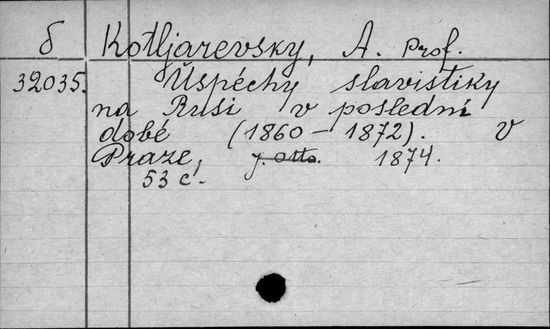 δ Kotljarevsky, A. Prof.
32035. Úspěchy slavistiky
na Rusi v poslední
době (1860 – 1872). V
Praze, J. Otto. 1874.
53 c.